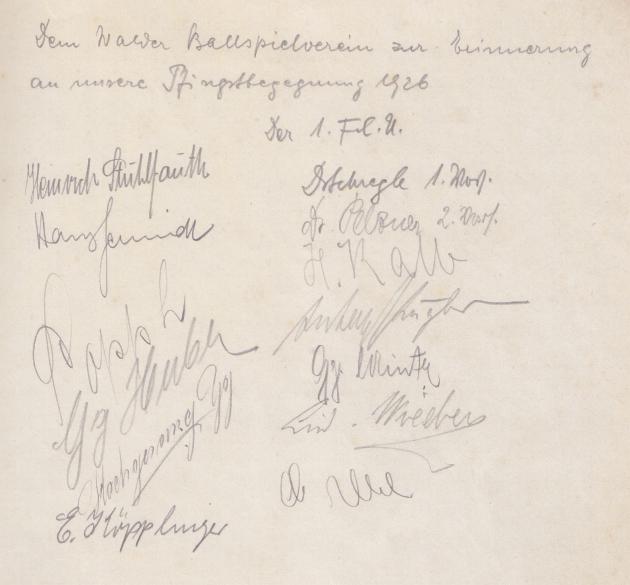 Dem Walder Ballspielverein zur Erinnerung
an unsere Pfingstbegegnung 1926
Der 1. F.C.N.
Heinrich Stuhlfauth
Hans Schmidt
Popp L
Gg Hochgesang Gg
E. Köpplinger
1. Vors.
Dr. Pelzner 2. Vors.
H. Kalb
Gg. Winter
Lud. Wieder